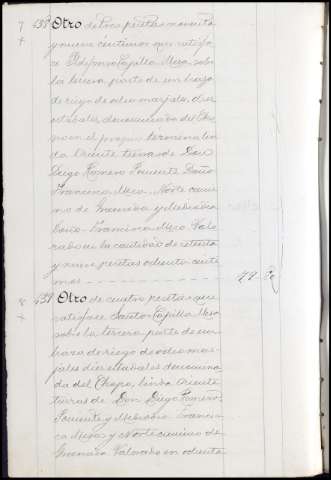 7 438 Otro de tres pesetas noventa
y nueve céntimos que satisface
Ildefonso Capilla Mesa sobre
la tercera parte de un haza
de riego de ocho marjales, diez
estadales denominada del Cha
po en el mismo término lin
da Oriente tierras de Don
Diego Romero Poniente Doña
Francisca Mesa Norte cami
no de Granada y Mediodía
Doña Francisca Mesa Valo
rado en la cantidad de setenta
y nueve pesetas ochenta cénti
mos 79 80
8 439 Otro de cuatro pesetas que
satisface Santos Capilla Mesa
sobre la tercera parte de un
haza de riego de ocho mar
jales diez estadales denomina
da del Chapo, linda Oriente
tierras de Don Diego Romero
Poniente y Mediodía Francis
ca Mesa y Norte camino de
Granada Valorado en ochenta